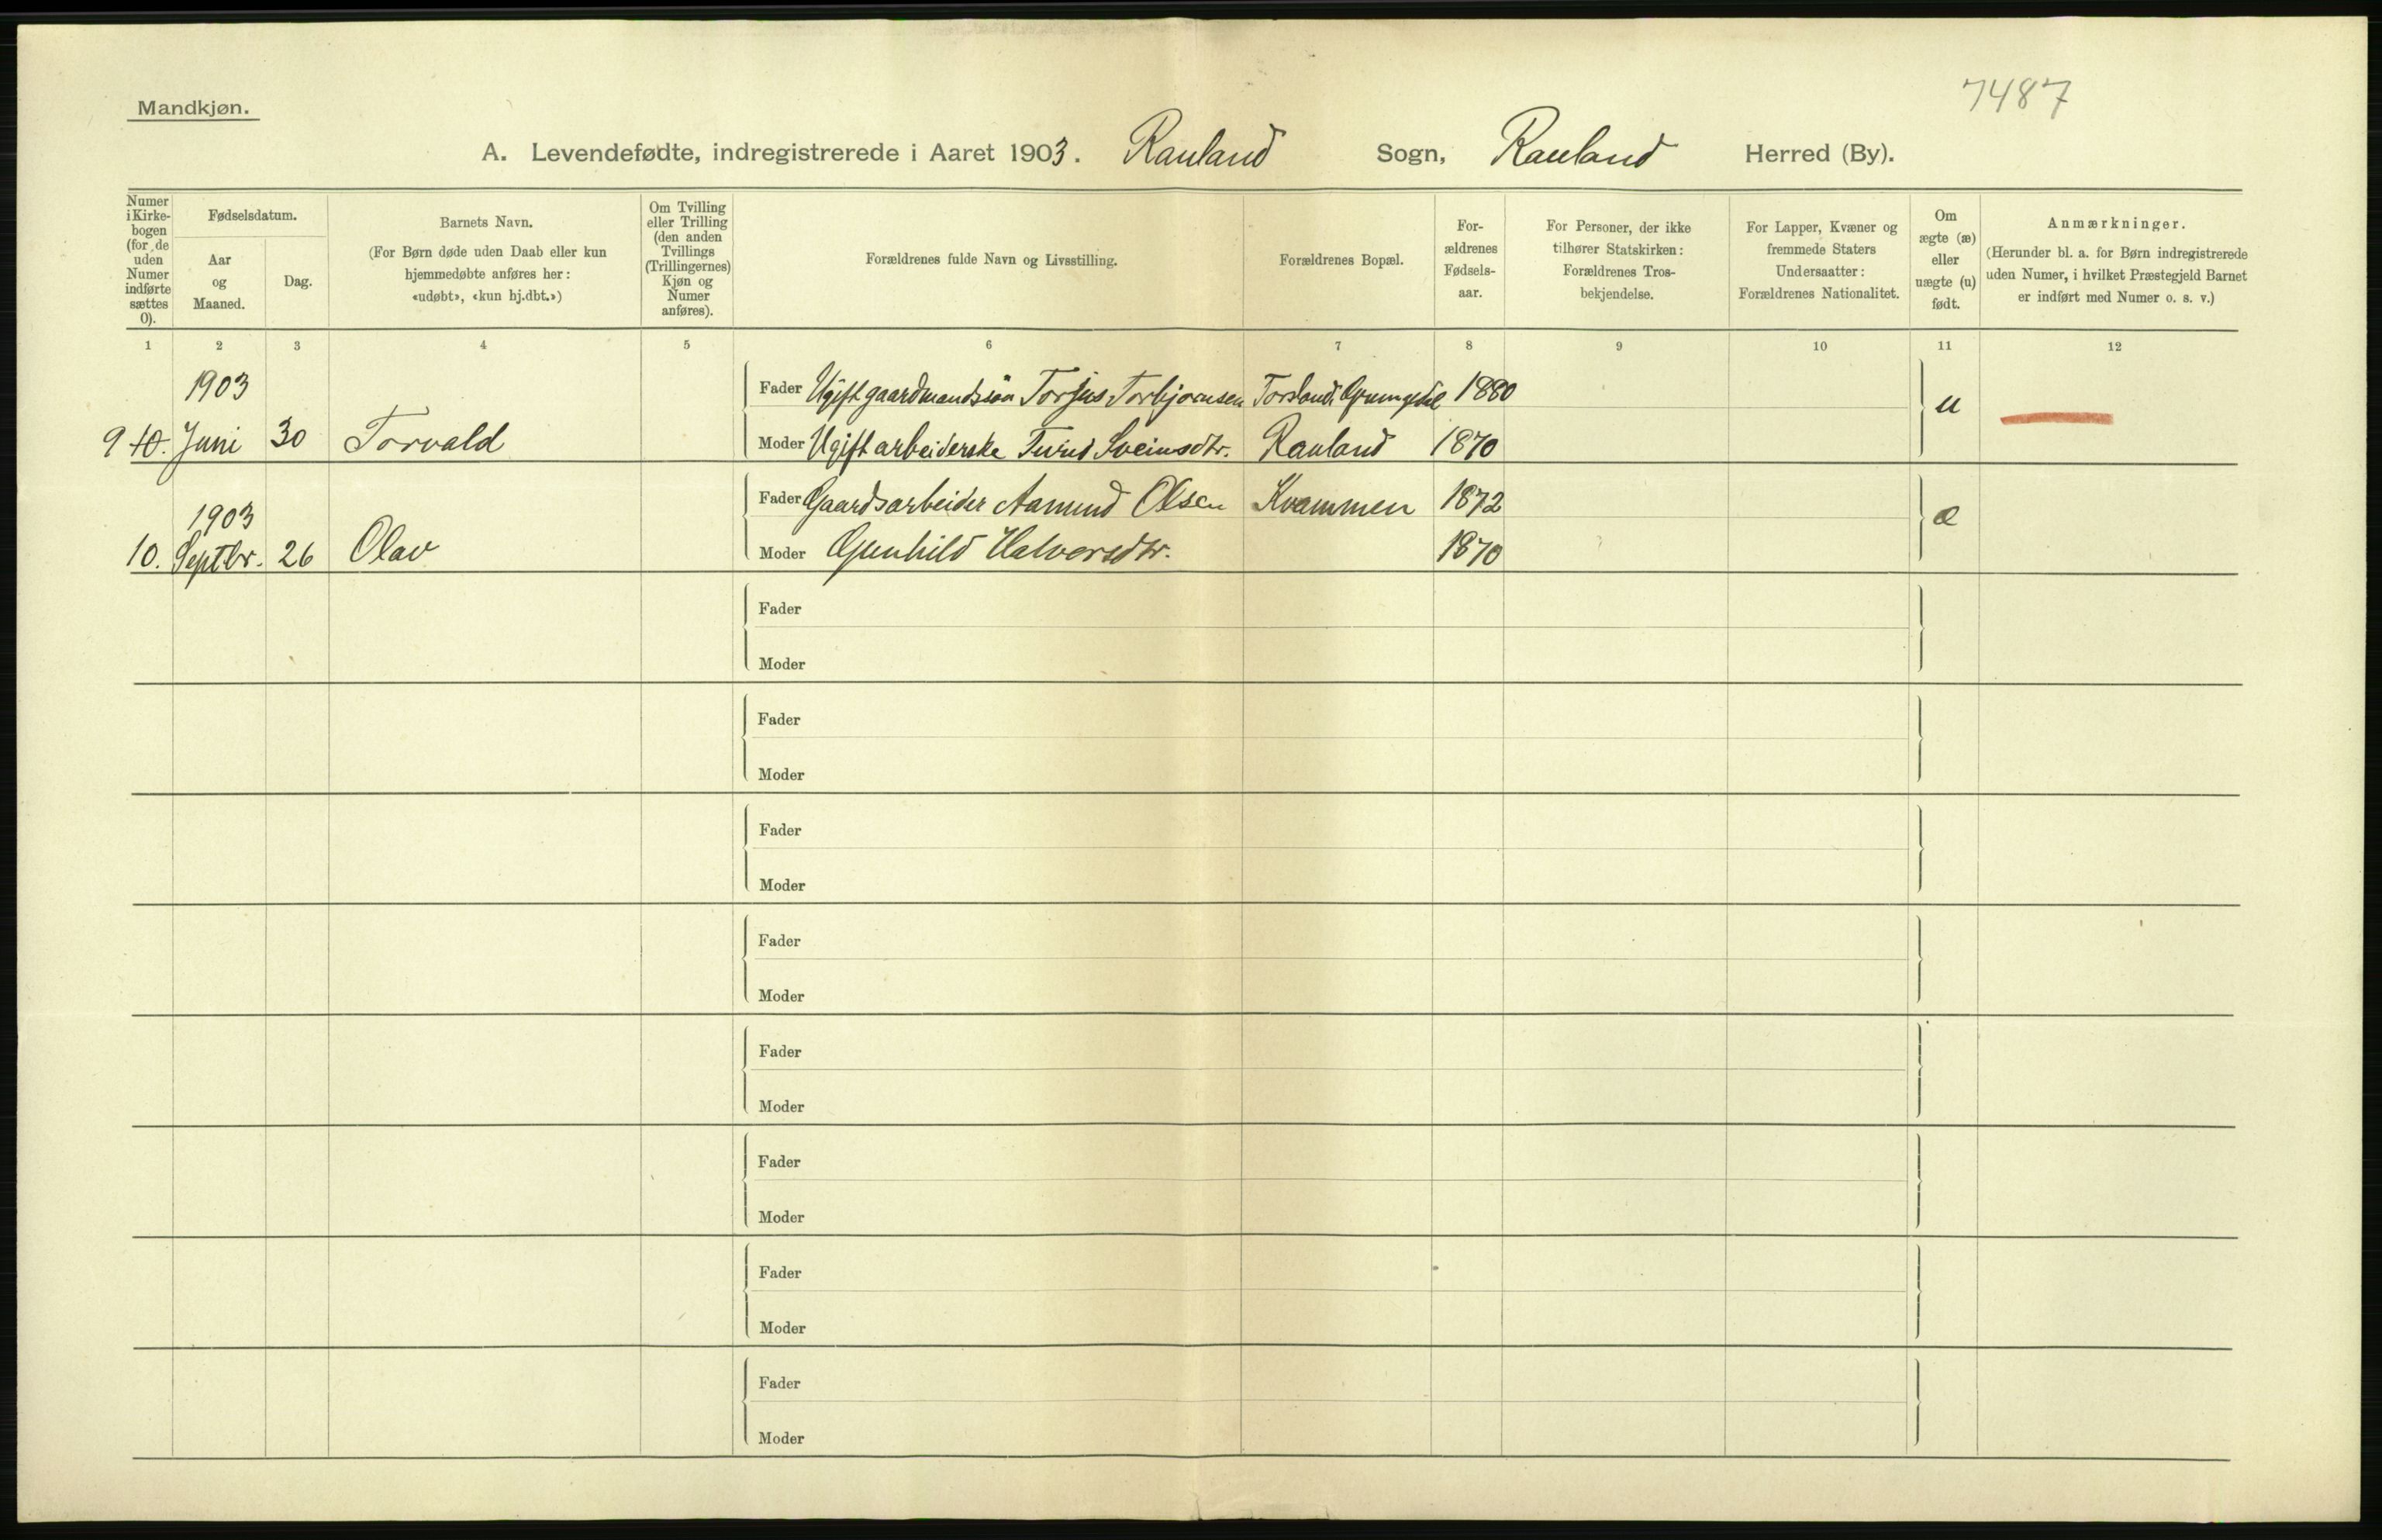 7487
Mandkjøn.
A. Levendefødte, indregistrerede i Aaret 1903. Rauland Sogn, Rauland Herred (By).
Numer i Kirke-bogen (for de uden Numer indførte sættes 0).
Fødselsdatum.
Aar og Maaned.
Dag.
Barnets Navn.
(For Børn døde uden Daab eller kun hjemmedøbte anføres her: «udøbt», «kun hj.dbt.»)
Om Tvilling eller Trilling (den anden Tvillings (Trillingernes) Kjøn og Numer anføres).
Forældrenes fulde Navn og Livsstilling.
Forældrenes Bopæl.
For-ældrenes Fødsels-aar.
For Personer, der ikke tilhører Statskirken: Forældrenes Tros-bekjendelse.
For Lapper, Kvæner og fremmede Staters Undersaatter: Forældrenes Nationalitet.
Om ægte (æ) eller uægte (u) født.
Anmærkninger.
(Herunder bl. a. for Børn indregistrerede uden Numer, i hvilket Præstegjeld Barnet er indført med Numer o. s. v.)
1 2 3 4 5 6 7 8 9 10 11 12
1903 Fader Ugift gaardmandssøn Torjus Torbjørnsen 1880 u
9 10. Juni 30 Torvald Moder Ugift arbeiderske Turid Sveinsdtr. Rauland 1870
1903 Fader Gaardsarbeider Aamund Olsen Kvammen 1872 æ
10. Septbr. 26 Olav Moder Gunhild Halvorsdtr. 1870
Fader
Moder
Fader
Moder
Fader
Moder
Fader
Moder
Fader
Moder
Fader
Moder
Fader
Moder
Fader
Moder